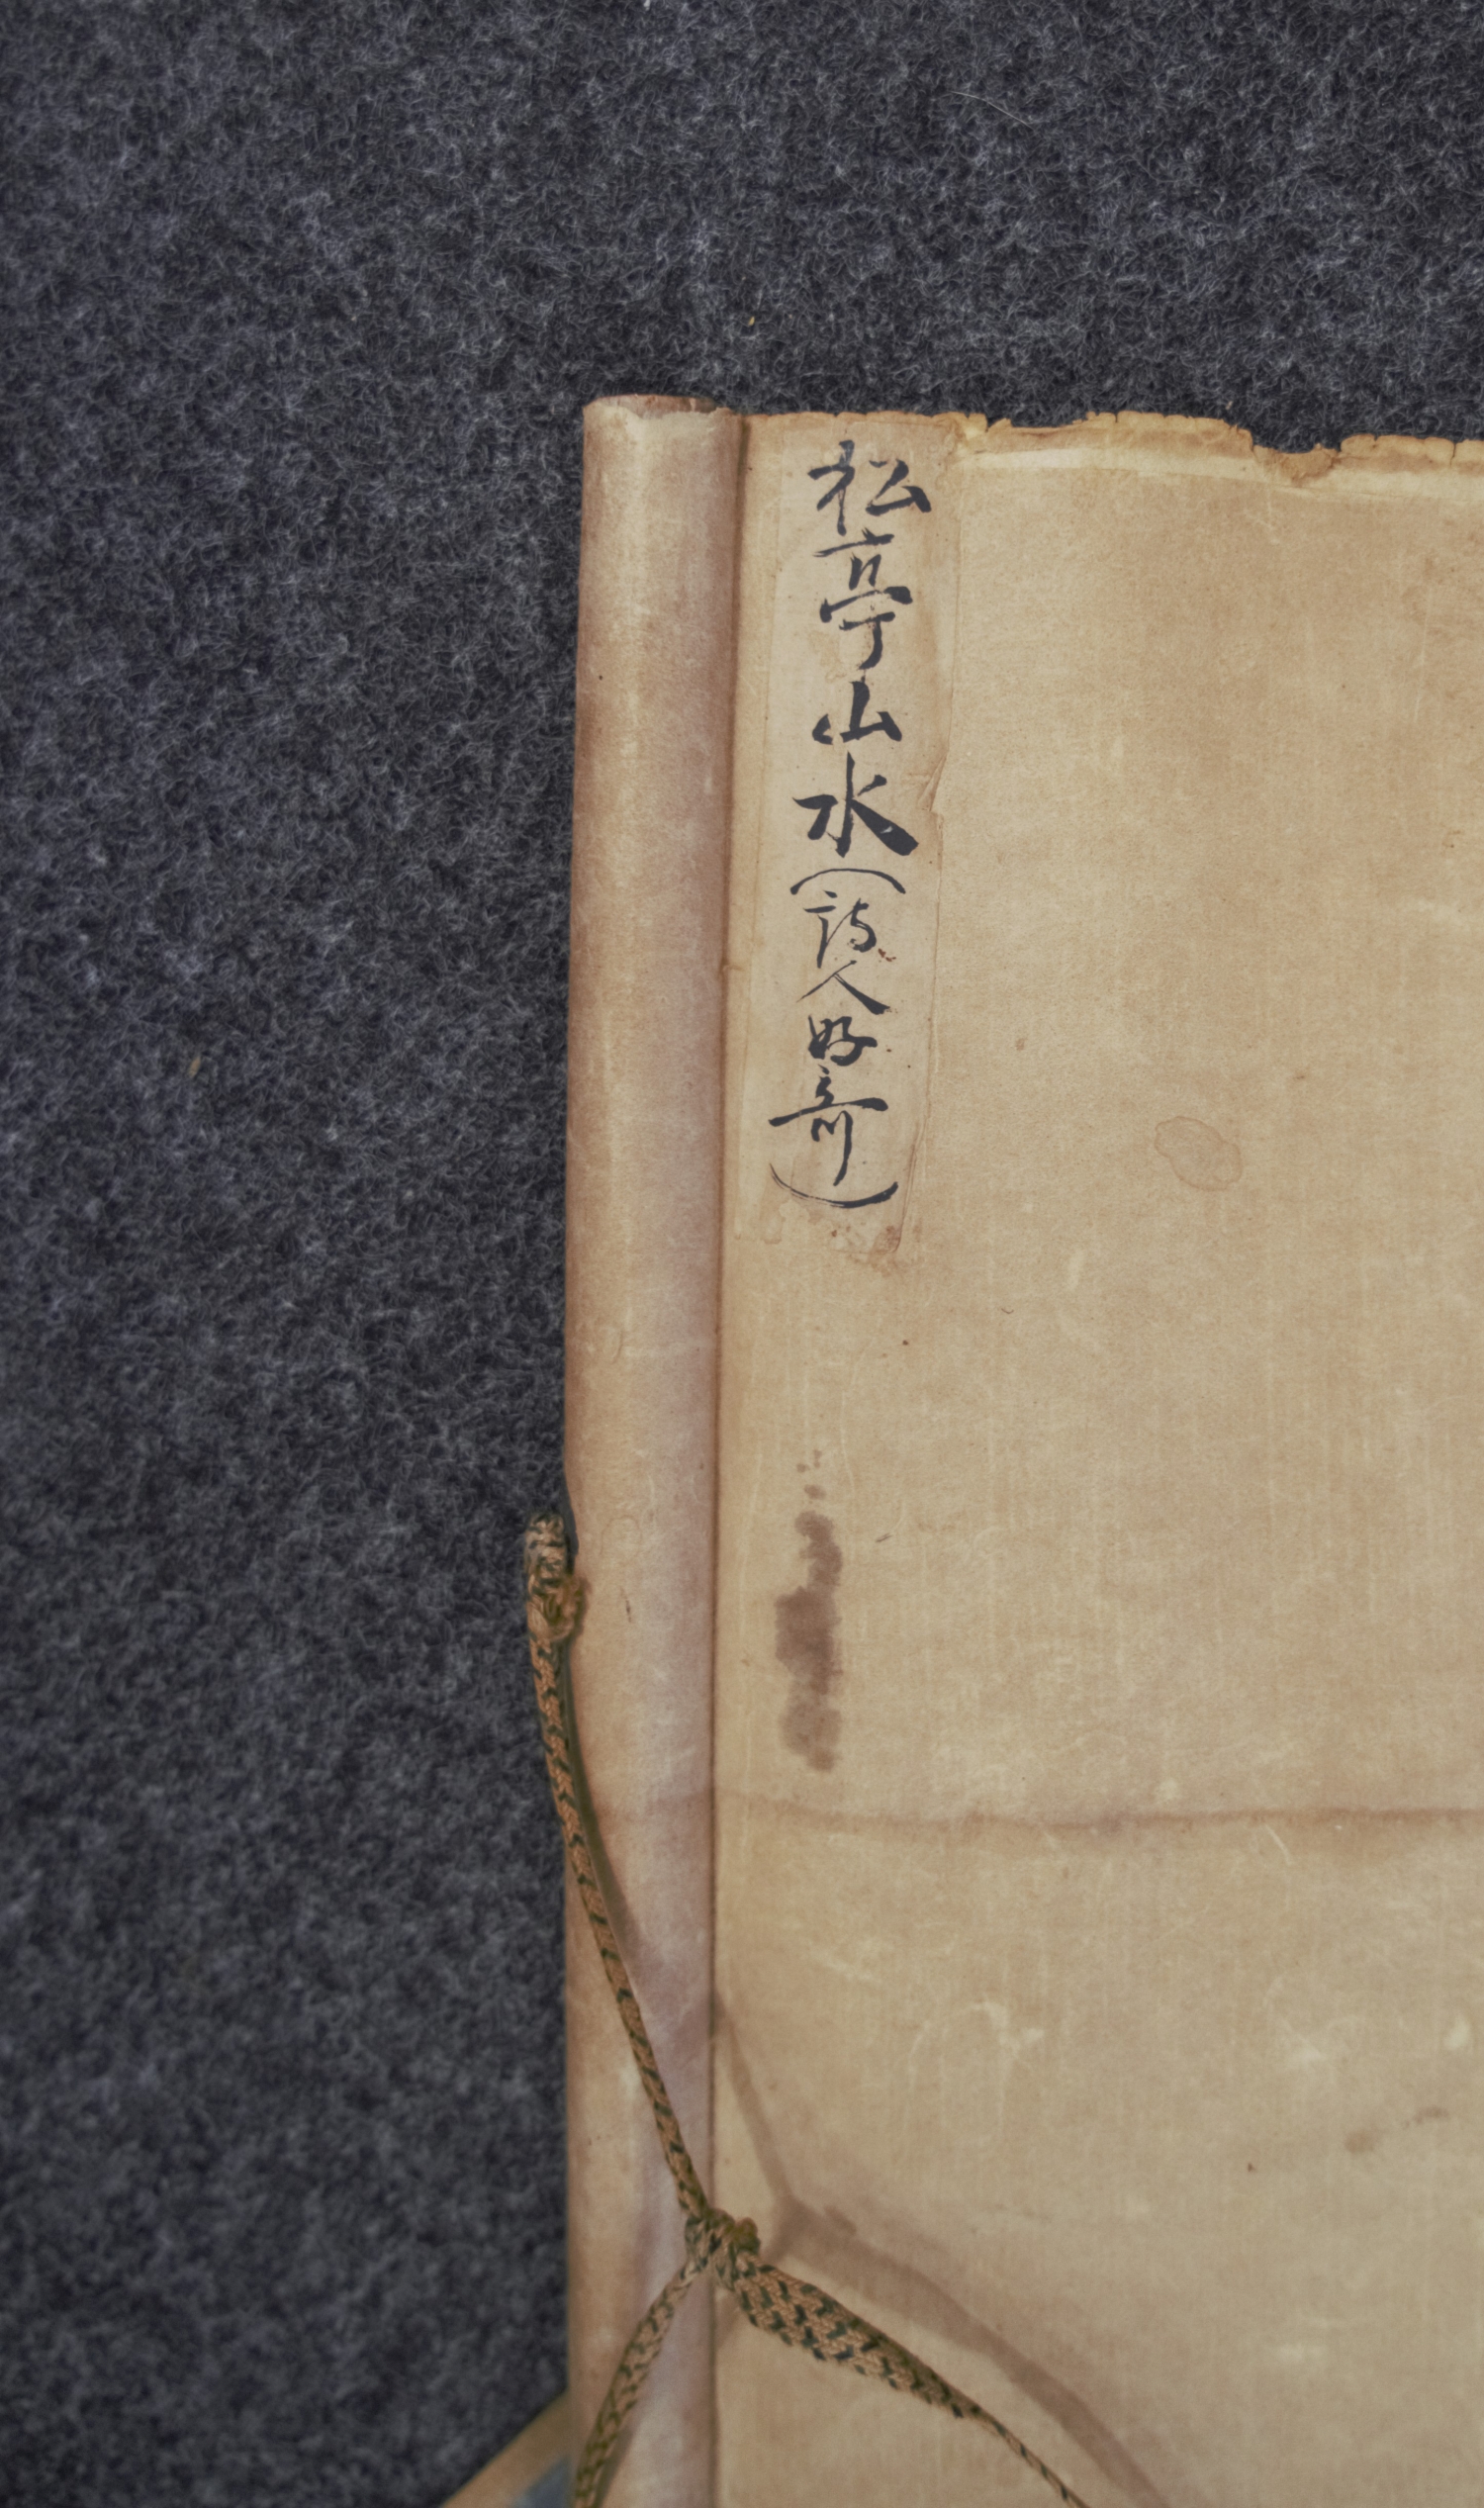 松亭山水（詩人好奇）